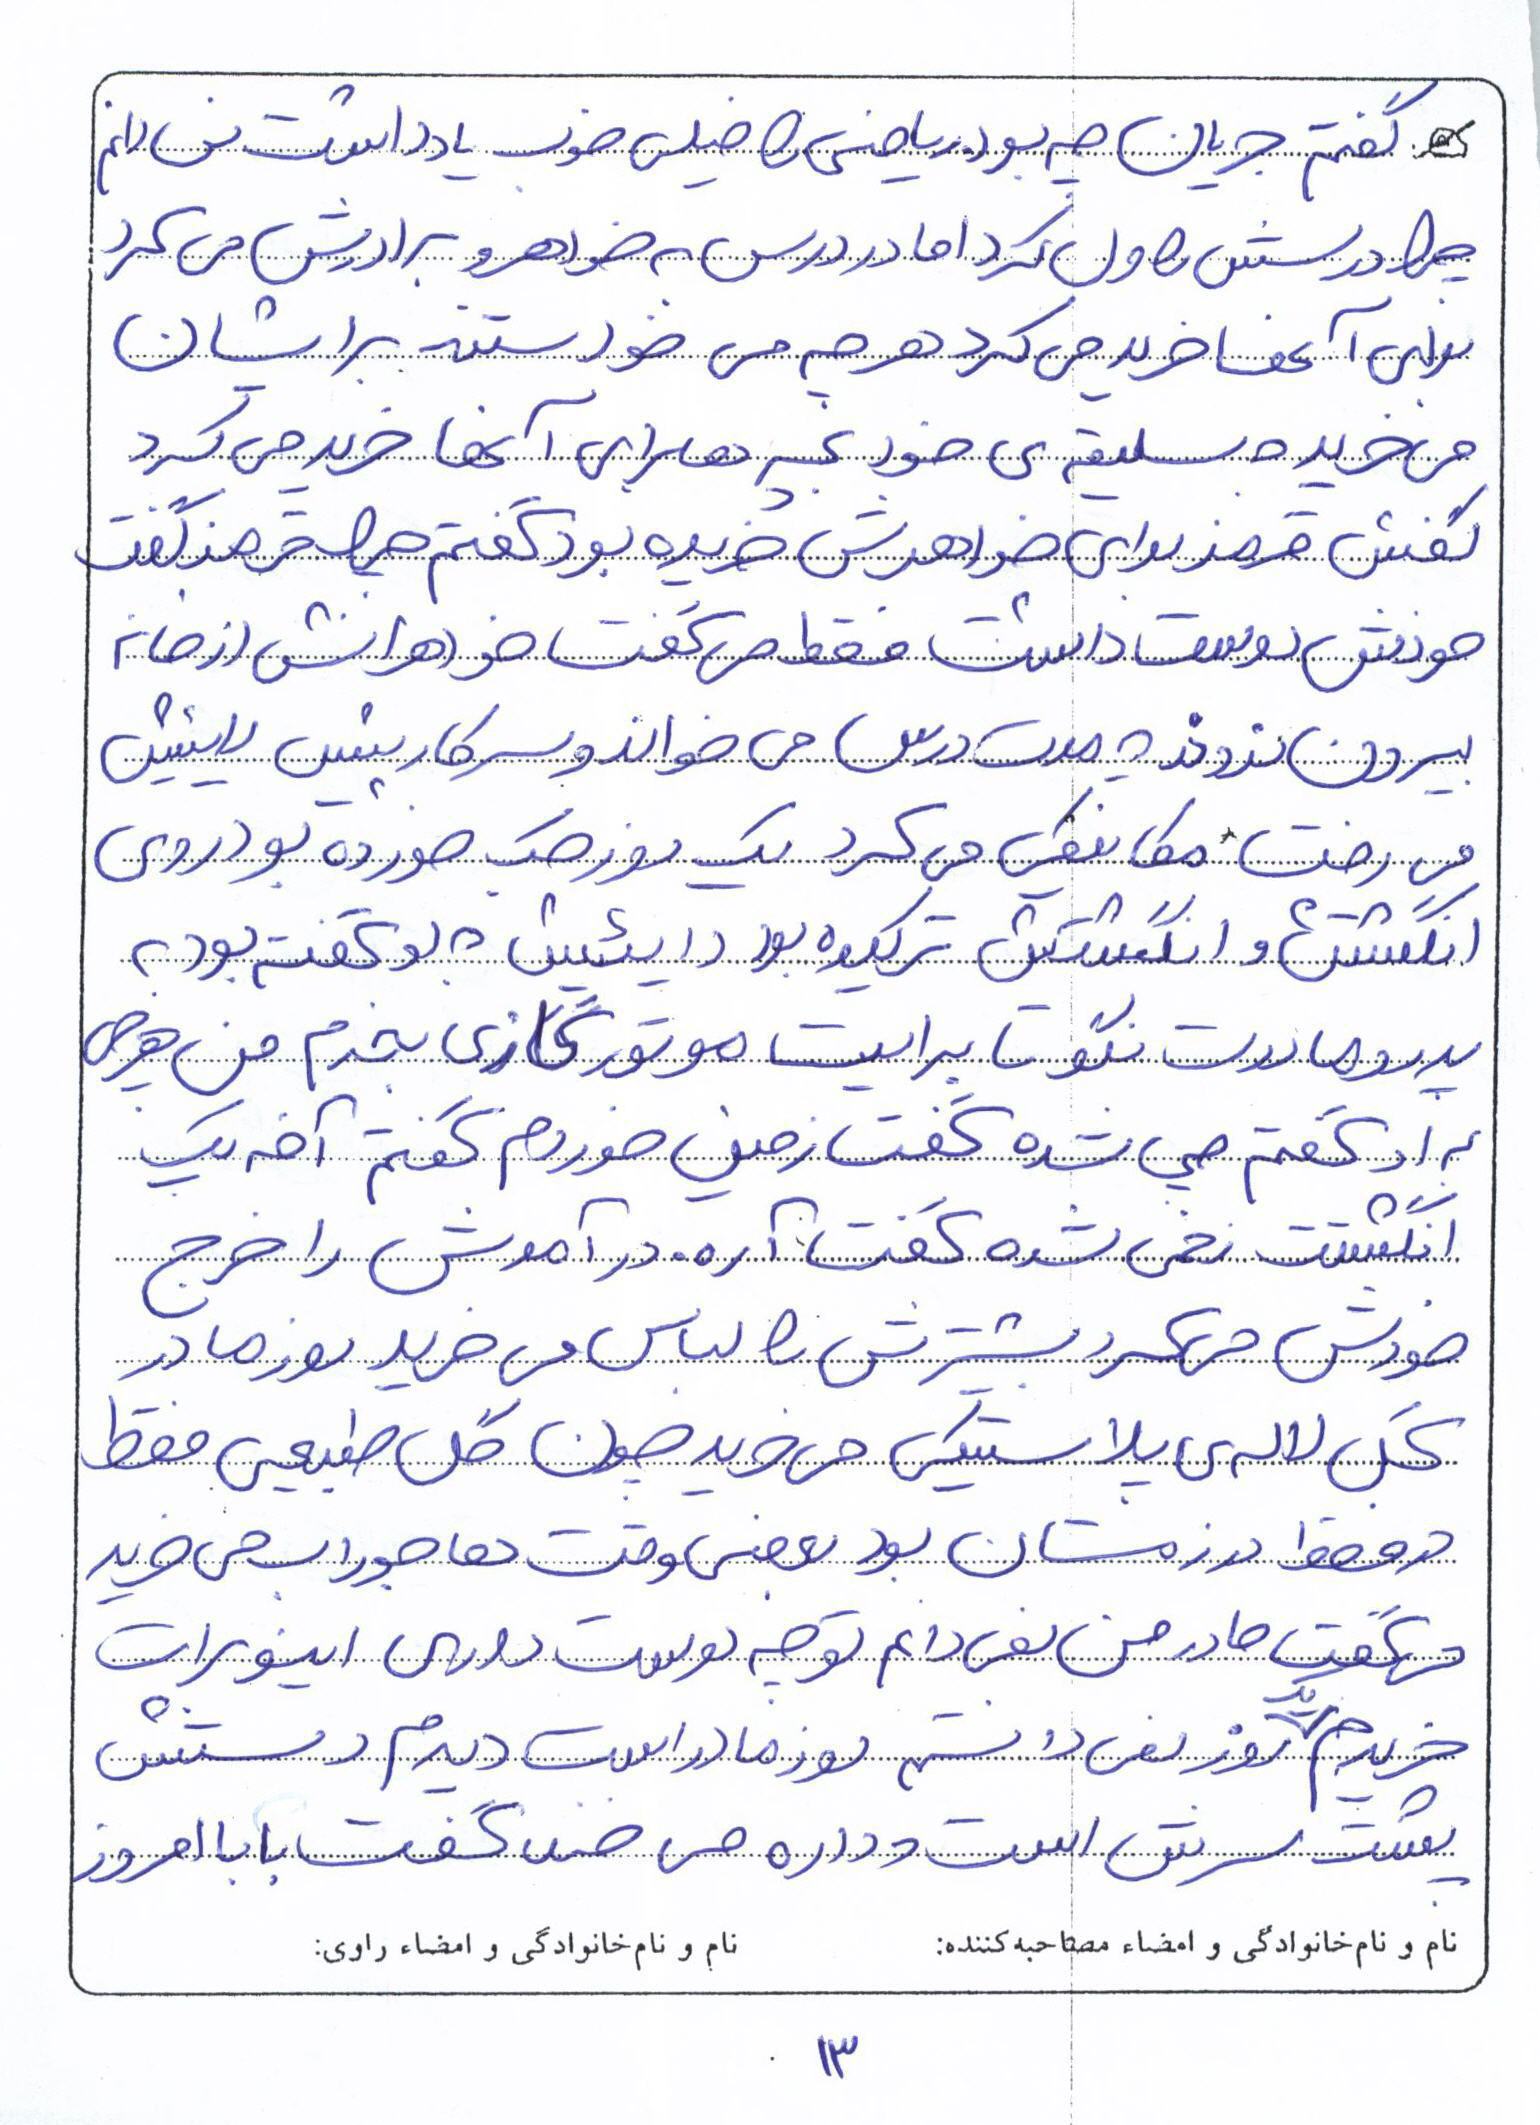 گفتم جریان چه بود. ریاضی را خیلی خوب یاد داشت نمی دانم
چرا درسش را ول کرد اما در درس به خواهر و برادرش می کرد
برای آنها خرید می کرد هر چه می خواستند برایشان
می خرید به سلیقه ی خود بچه ها برای آنها خرید می کرد
کفش قرمز برای خواهرش خریده بود گفتم چرا قرمز گفت
خودش دوست داشت فقط می گفت خواهرانش از خانه
بیرون نروند مدت درس می خواند و سر کار پیش داییش
می رفت مکانیکی می کرد یک روز چک خورده بود روی
انگشتش و انگشتش ترکیده بود داییش به او گفته بود به
پدر و مادرت نگو تا برایت موتور گازی بخرم من هر چی
به او گفتم چی شده گفت زمین خوردم گفتم آخه یک
انگشتت زخمی شده گفت آره. درآمدش را خرج
خودش می کرد بیشترش را لباس می خرید روز مادر
گل لاله ی پلاستیکی می خرید چون گل طبیعی فقط
در زمستان بود بعضی وقت ها جوراب می خرید
می گفت مادر من نمی دانم تو چه دوست داری اینو برات
خریدم یک روز نمی دانستم روز مادر است دیدم دستش
پشت سرش است و داره می خنده گفت بابا امروز
نام و نام‌خانوادگی و امضاء مصاحبه‌کننده:
نام و نام‌خانوادگی و امضاء راوی:
۱۳